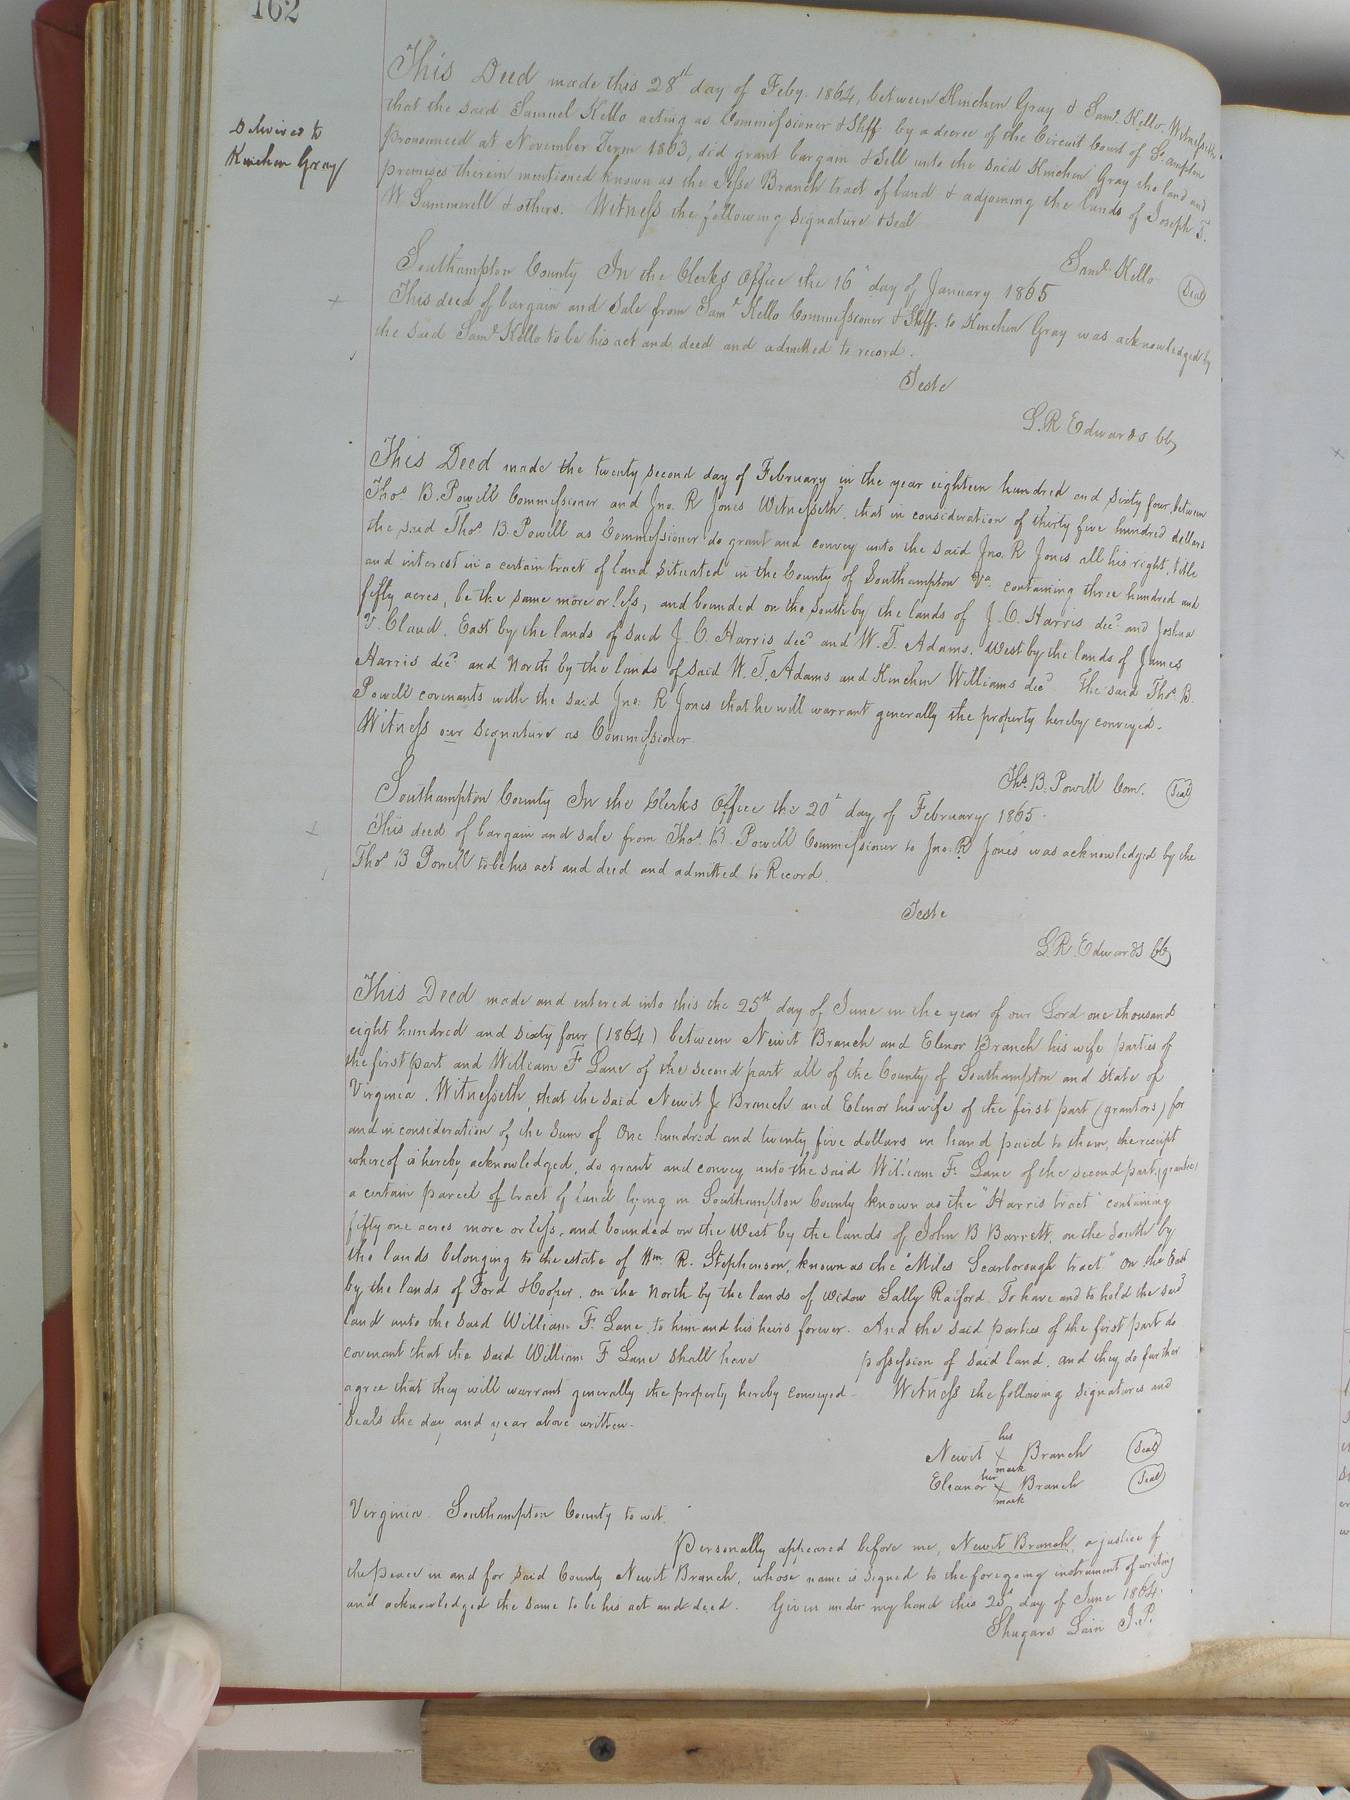 162
Delivered to
Kinchen Gray
This Deed made this 28th day of Feby. 1864, between Kinchen Gray & Saml. Kello. Witnesseth
that the said Samuel Kello acting as Commissioner & Shff by a decree of the Circuit Court of S. ampton
pronounced at November Term 1863, did grant bargain & sell unto the said Kinchen Gray the land and
premises therein mentioned known as the Jesse Branch tract of land & adjoining the lands of Joseph T.
W Summerell & others. Witness the following signature & seal
Saml. Kello Seal
Southampton County In the Clerks Office the 16th day of January 1865
This deed of bargain and sale from Saml Kello Commissioner & Shff. to Kinchen Gray was acknowledged by
the said Saml Kello to be his act and deed and admitted to record.
Teste
L. R Edwards CC
This Deed made the twenty second day of February in the year eighteen hundred and sixty four, between
Thos B. Powell Commissioner and Jno. R Jones Witnesseth, that in consideration of thirty five hundred dollars
the said Thos B. Powell as Commissioner do grant and convey unto the said Jno. R Jones all his right, title
and interest in a certain tract of land situated in the County of Southampton Va. containing three hundred and
fifty acres, be the same more or less, and bounded on the South by the lands of J. C. Harris decd and Joshua
T. Claud. East by the lands of said J. C. Harris decd and W. T. Adams. West by the lands of James
Harris decd. and North by the lands of said W. T. Adams and Kinchen Williams decd The said Thos B.
Powell covenants with the said Jno. R Jones that he will warrant generally the property hereby conveyed.
Witness our signature as Commissioner.
Thos. B. Powell Com. Seal
Southampton County In the Clerks Office the 20th day of February 1865.
This deed of bargain and sale from Thos B. Powell Commissioner to Jno. R Jones was acknowledged by the
Thos B Powell to be his act and deed and admitted to Record.
Teste
L. R. Edwards CC
This Deed made and entered into this the 25th day of June in the year of our Lord one thousand
eight hundred and sixty four (1864) between Newit Branch and Elenor Branch his wife parties of
the first part and William F Lane of the second part all of the County of Southampton and State of
Virginia. Witnesseth, that the said Newit J. Branch and Elenor his wife of the first part (grantors) for
and in consideration of the sum of One hundred and twenty five dollars in hand paid to them, the receipt
whereof is hereby acknowledged, do grant and convey unto the said William F. Lane of the second part, (grantee)
a certain parcel of tract of land lying in Southampton County known as the "Harris tract" containing
fifty one acres more or less, and bounded on the West by the lands of John B Barrett, on the South by
the lands belonging to the estate of Wm. R. Stephenson, known as the "Miles Scarborough tract" On the East
by the lands of Ford & Cooper, on the North by the lands of widow Sally Raiford. To have and to hold the said
land unto the said William F. Lane, to him and his heirs forever. And the said parties of the first part do
covenant that the said William F Lane shall have possession of said land, and they do further
agree that they will warrant generally the property hereby conveyed. Witness the following signatures and
seals the day and year above written.
his
Newit X Branch Seal
mark
her
Eleanor X Branch Seal
mark
Virginia. Southampton County to wit.
Personally appeared before me, Newit Branch, a justice of
the Peace in and for said County Newit Branch, whose name is signed to the foregoing instrument of writing
and acknowledged the same to be his act and deed. Given under my hand this 25th day of June 1864.
Shugars Lain J. P.